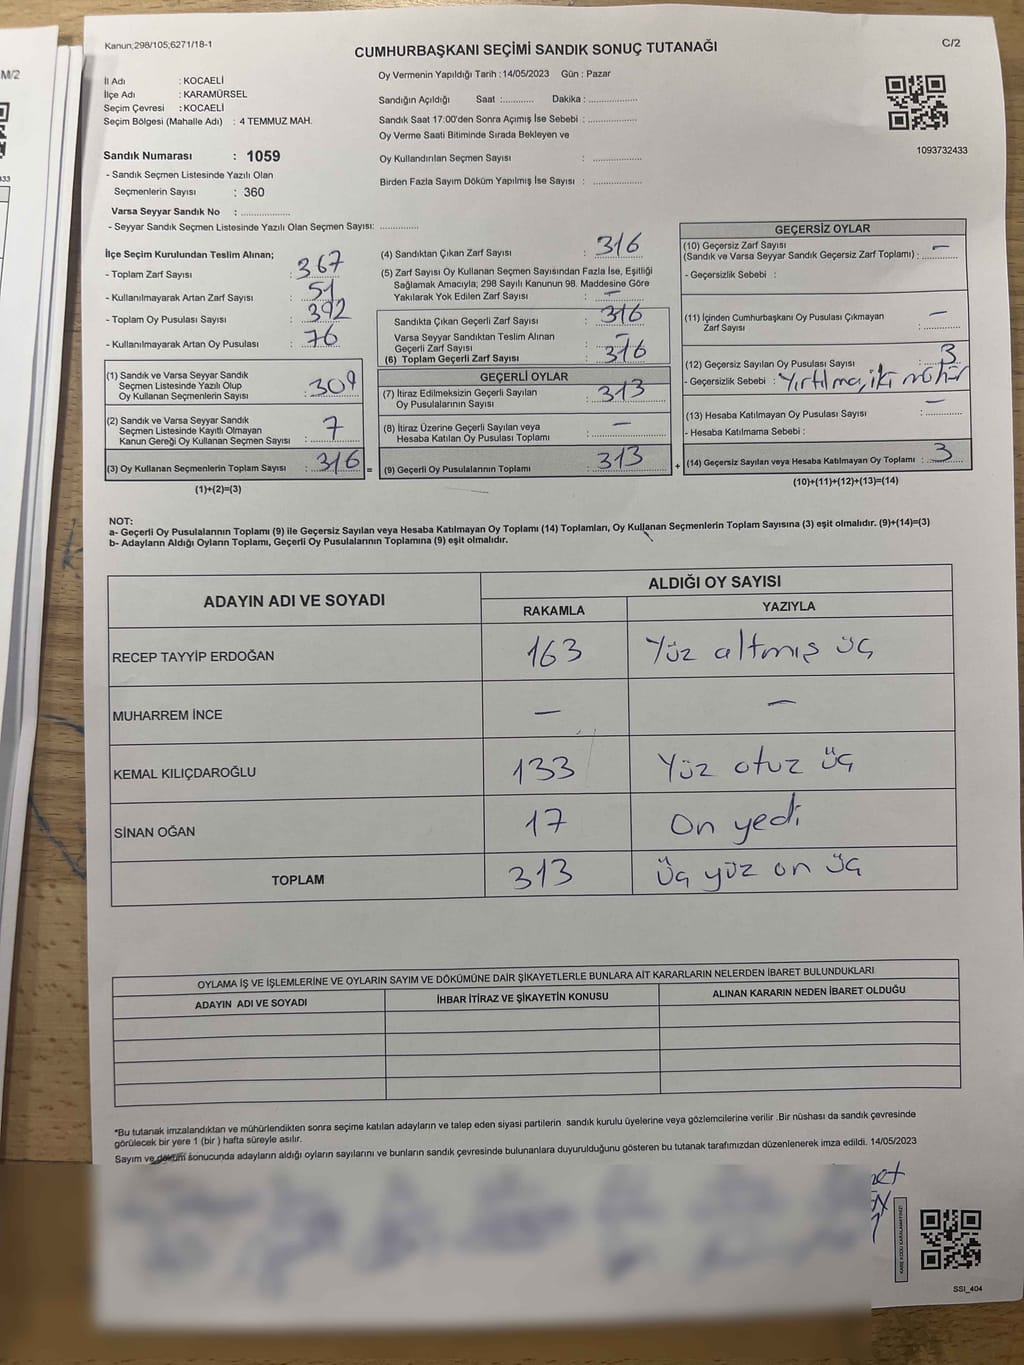 M/2
Kanun;298/105;6271/18-1
C/2
CUMHURBAŞKANI SEÇİMİ SANDIK SONUÇ TUTANAĞI
Oy Vermenin Yapıldığı Tarih :14/05/2023 Gün : Pazar
İl Adı : KOCAELİ
İlçe Adı : KARAMÜRSEL
Seçim Çevresi : KOCAELİ
Seçim Bölgesi (Mahalle Adı) : 4 TEMMUZ MAH.
Sandığın Açıldığı Saat :........... Dakika : .................
Sandık Saat 17:00'den Sonra Açımış İse Sebebi : .................
Oy Verme Saati Bitiminde Sırada Bekleyen ve
Oy Kullandırılan Seçmen Sayısı : .................
Birden Fazla Sayım Döküm Yapılmış İse Sayısı : .................
1093732433
Sandık Numarası : 1059
- Sandık Seçmen Listesinde Yazılı Olan
Seçmenlerin Sayısı : 360
Varsa Seyyar Sandık No : .................
- Seyyar Sandık Seçmen Listesinde Yazılı Olan Seçmen Sayısı: .............
İlçe Seçim Kurulundan Teslim Alınan;
- Toplam Zarf Sayısı : 367
- Kullanılmayarak Artan Zarf Sayısı : 51
- Toplam Oy Pusulası Sayısı : 392
- Kullanılmayarak Artan Oy Pusulası : 76
(1) Sandık ve Varsa Seyyar Sandık
Seçmen Listesinde Yazılı Olup
Oy Kullanan Seçmenlerin Sayısı : 309
(2) Sandık ve Varsa Seyyar Sandık
Seçmen Listesinde Kayıtlı Olmayan
Kanun Gereği Oy Kullanan Seçmen Sayısı : 7
(3) Oy Kullanan Seçmenlerin Toplam Sayısı : 316 =
(1)+(2)=(3)
(4) Sandıktan Çıkan Zarf Sayısı : 316
(5) Zarf Sayısı Oy Kullanan Seçmen Sayısından Fazla İse, Eşitliği
Sağlamak Amacıyla; 298 Sayılı Kanunun 98. Maddesine Göre
Yakılarak Yok Edilen Zarf Sayısı : —
Sandıkta Çıkan Geçerli Zarf Sayısı : 316
Varsa Seyyar Sandıktan Teslim Alınan
Geçerli Zarf Sayısı : —
(6) Toplam Geçerli Zarf Sayısı : 316
GEÇERLİ OYLAR
(7) İtiraz Edilmeksizin Geçerli Sayılan
Oy Pusulalarının Sayısı : 313
(8) İtiraz Üzerine Geçerli Sayılan veya
Hesaba Katılan Oy Pusulası Toplamı : —
(9) Geçerli Oy Pusulalarının Toplamı : 313 +
GEÇERSİZ OYLAR
(10) Geçersiz Zarf Sayısı
(Sandık ve Varsa Seyyar Sandık Geçersiz Zarf Toplamı) : —
- Geçersizlik Sebebi :
(11) İçinden Cumhurbaşkanı Oy Pusulası Çıkmayan
Zarf Sayısı : —
(12) Geçersiz Sayılan Oy Pusulası Sayısı : 3
- Geçersizlik Sebebi : Yırtılma, iki mühür
(13) Hesaba Katılmayan Oy Pusulası Sayısı : —
- Hesaba Katılmama Sebebi :
(14) Geçersiz Sayılan veya Hesaba Katılmayan Oy Toplamı : 3
(10)+(11)+(12)+(13)=(14)
NOT:
a- Geçerli Oy Pusulalarının Toplamı (9) ile Geçersiz Sayılan veya Hesaba Katılmayan Oy Toplamı (14) Toplamları, Oy Kullanan Seçmenlerin Toplam Sayısına (3) eşit olmalıdır. (9)+(14)=(3)
b- Adayların Aldığı Oyların Toplamı, Geçerli Oy Pusulalarının Toplamına (9) eşit olmalıdır.
ADAYIN ADI VE SOYADI
ALDIĞI OY SAYISI
RAKAMLA YAZIYLA
RECEP TAYYİP ERDOĞAN 163 Yüz altmış üç
MUHARREM İNCE — —
KEMAL KILIÇDAROĞLU 133 Yüz otuz üç
SİNAN OĞAN 17 On yedi
TOPLAM 313 Üç yüz on üç
OYLAMA İŞ VE İŞLEMLERİNE VE OYLARIN SAYIM VE DÖKÜMÜNE DAİR ŞİKAYETLERLE BUNLARA AİT KARARLARIN NELERDEN İBARET BULUNDUKLARI
ADAYIN ADI VE SOYADI İHBAR İTİRAZ VE ŞİKAYETİN KONUSU ALINAN KARARIN NEDEN İBARET OLDUĞU
*Bu tutanak imzalandıktan ve mühürlendikten sonra seçime katılan adayların ve talep eden siyasi partilerin sandık kurulu üyelerine veya gözlemcilerine verilir .Bir nüshası da sandık çevresinde
görülecek bir yere 1 (bir ) hafta süreyle asılır.
Sayım ve döküm sonucunda adayların aldığı oyların sayılarını ve bunların sandık çevresinde bulunanlara duyurulduğunu gösteren bu tutanak tarafımızdan düzenlenerek imza edildi. 14/05/2023
KARE KODU KARALAMAYINIZ!
SSI_404